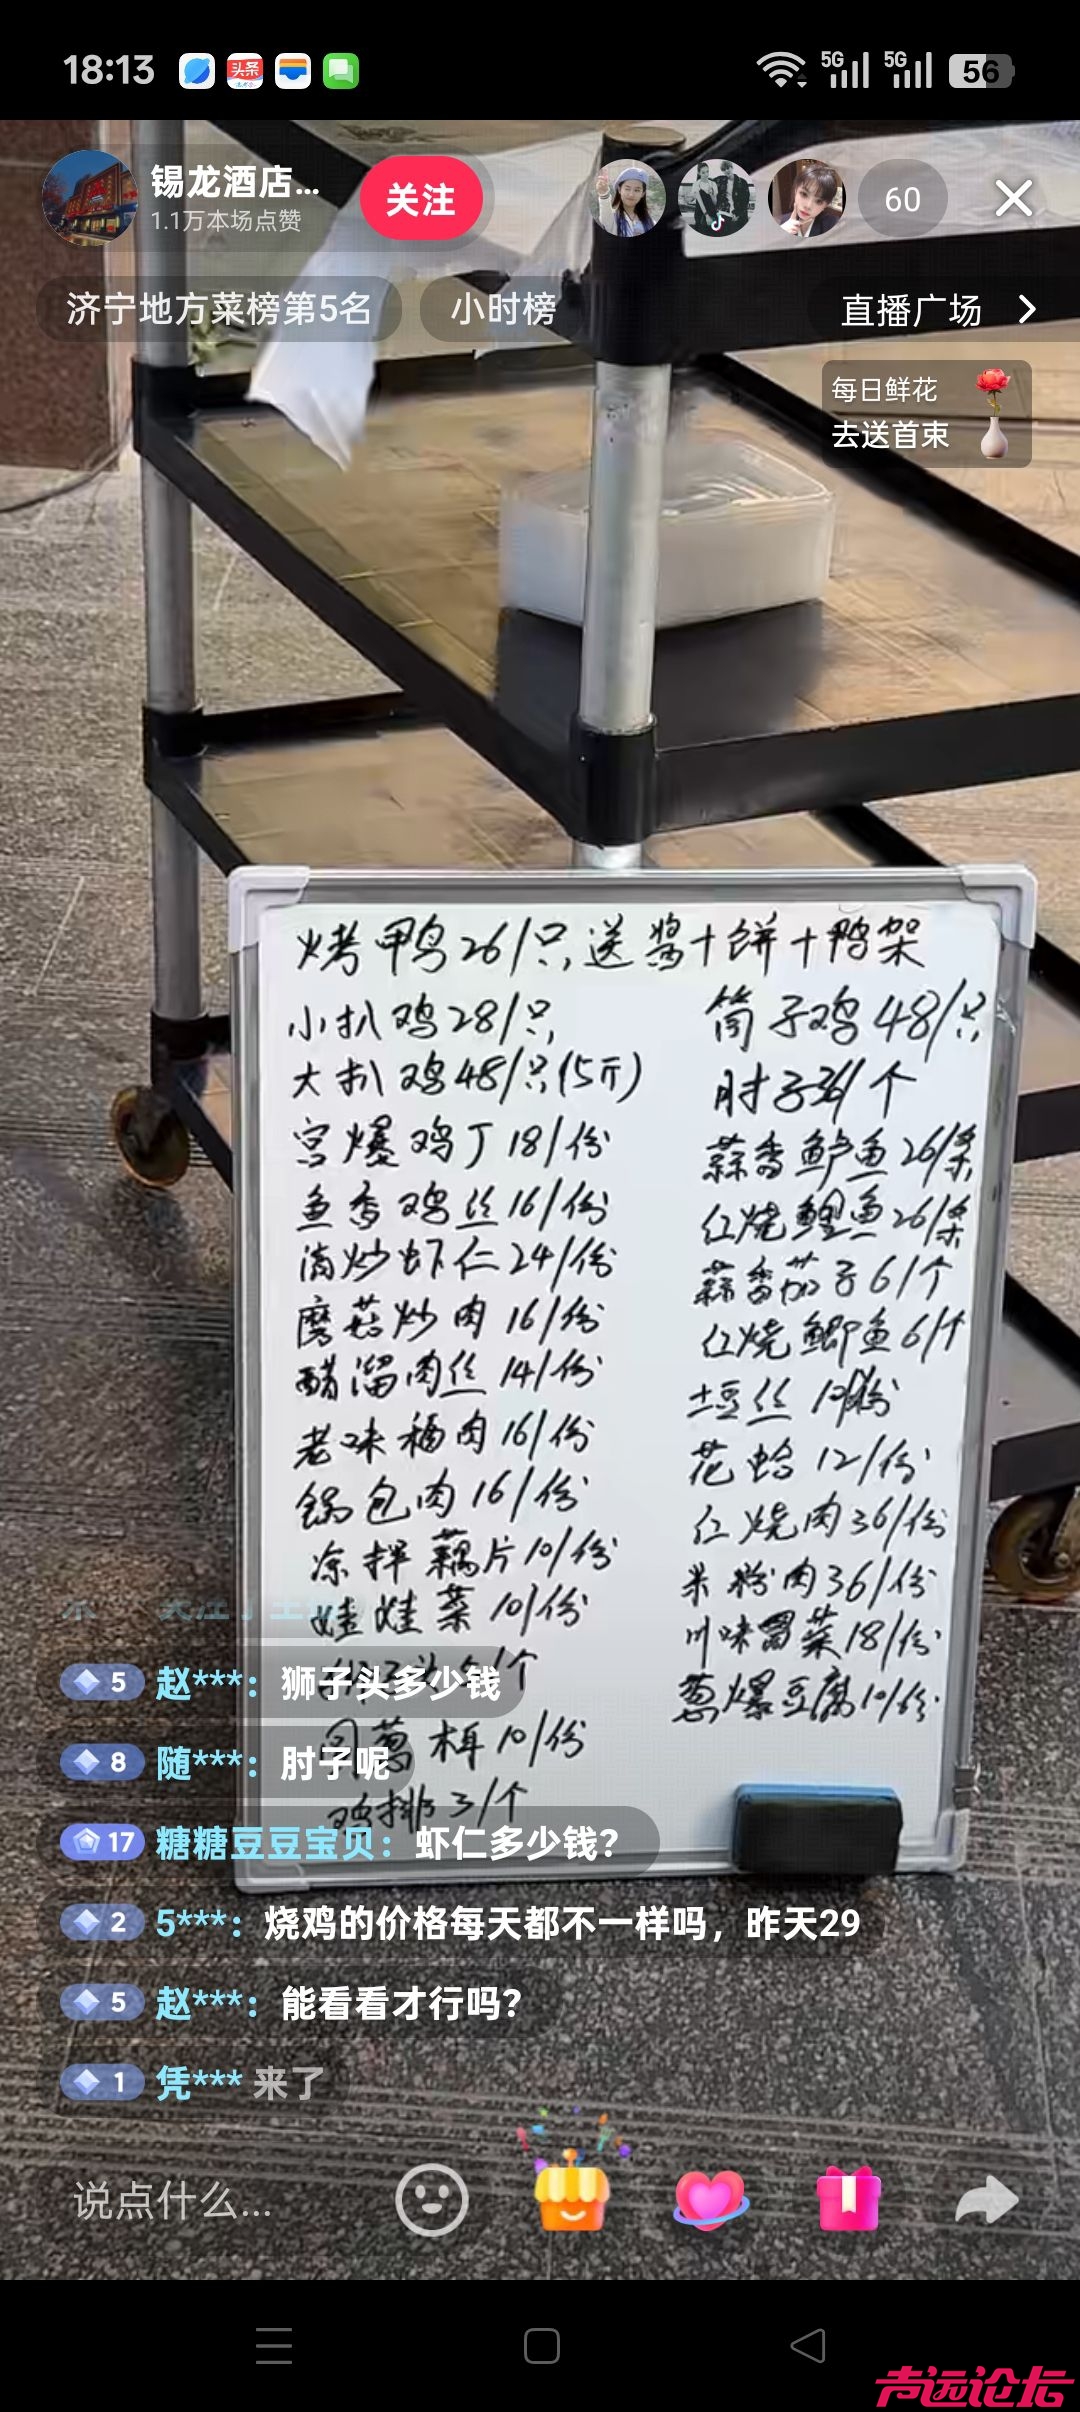 18:13
头条
5G 5G 56
锡龙酒店... 关注 60
1.1万本场点赞
济宁地方菜榜第5名 小时榜 直播广场
每日鲜花
去送首束
烤鸭26/只,送酱+饼+鸭架
小扒鸡28/只 筒子鸡48/只
大扒鸡48/只(5斤) 肘子36/个
宫爆鸡丁18/份 蒜香鲈鱼26/条
鱼香鸡丝16/份 红烧鲤鱼26/条
清炒虾仁24/份 蒜香茄子6/个
蘑菇炒肉16/份 红烧鲫鱼6/个
醋溜肉丝14/份 土豆丝10/份
老味熘肉16/份 花蛤12/份
锅包肉16/份 红烧肉36/份
凉拌藕片10/份 米粉肉36/份
娃娃菜10/份 川味冒菜18/份
/个 葱爆豆腐10/份
葱木耳10/份
鸡排3/个
5 赵***：狮子头多少钱
8 随***：肘子呢
17 糖糖豆豆宝贝：虾仁多少钱？
2 5***：烧鸡的价格每天都不一样吗，昨天29
5 赵***：能看看才行吗？
1 凭*** 来了
说点什么...
声远论坛